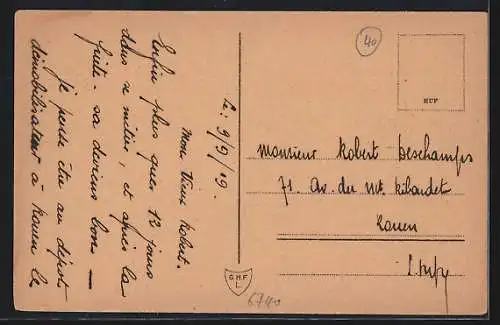 Le: 9/9/19.
Mon Vieux Robert.
Enfin plus que 12 jours
dans ce métier, et après la
fuite - sa devient bon —
je pense être au dépôt
démobilisateur à Rouen le
40
MUF
Monsieur Robert Deschamps
71. Av. du Mt.
Rouen
S. Infre
G.M.F.
L
6740